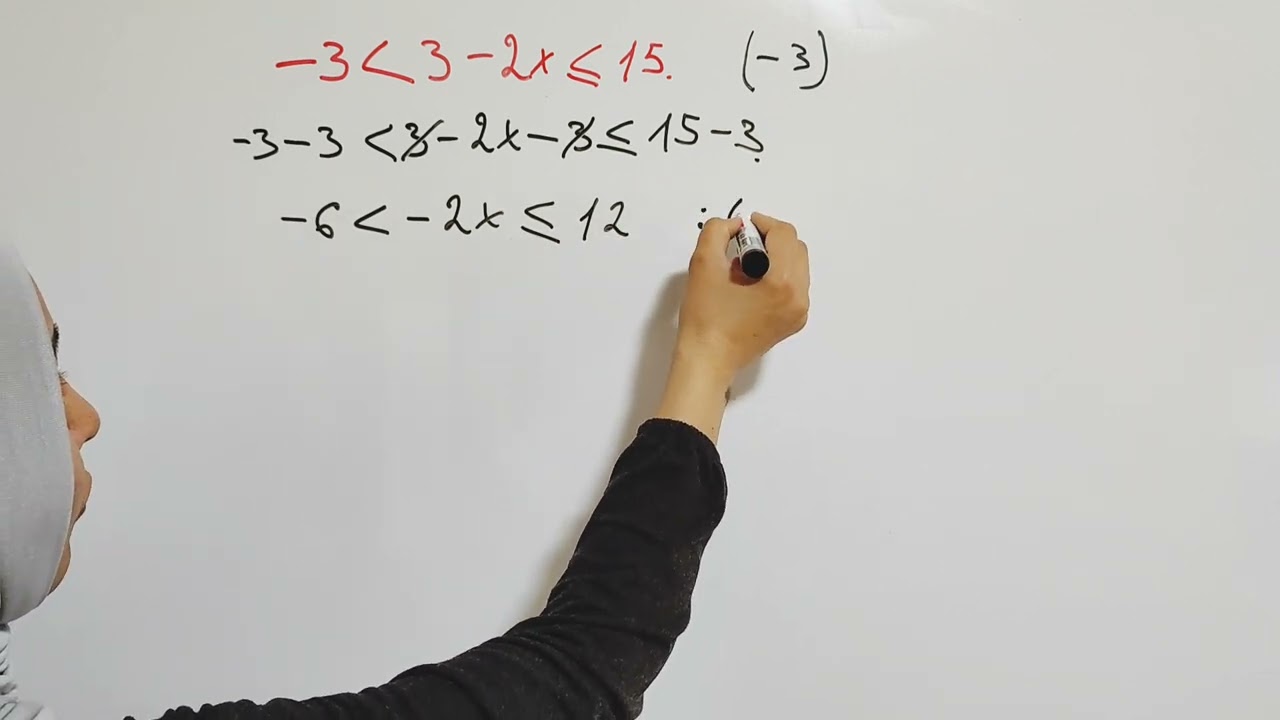 -3 < 3 - 2x ≤ 15. (-3)
-3 - 3 < 3 - 2x - 3 ≤ 15 - 3
-6 < -2x ≤ 12 : (